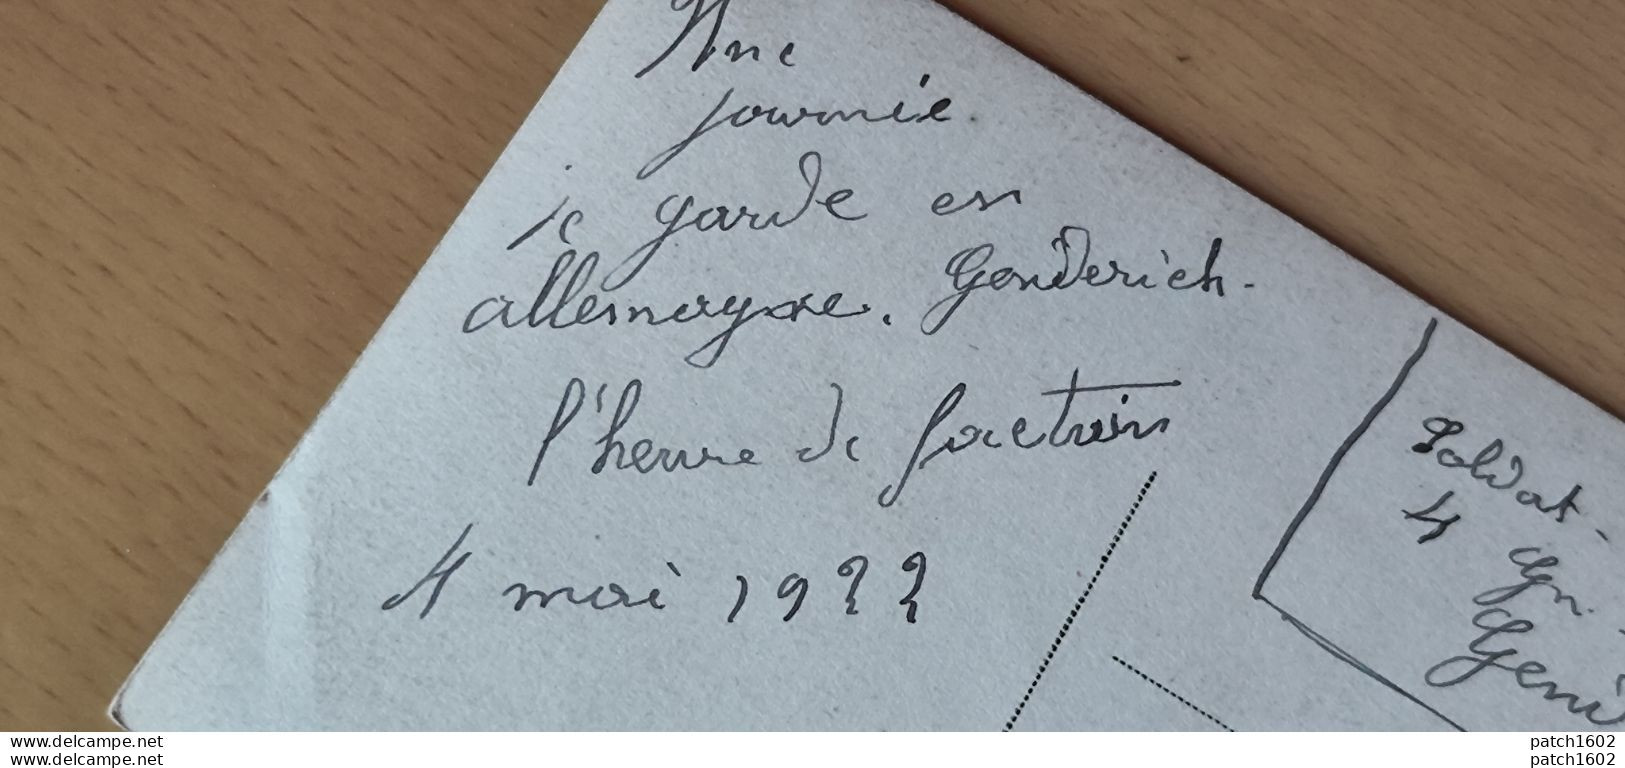 Une
journée
de garde en
allemagne. Gonderich.
l'heure de faction
4 mai 1922
Soldat.
4 Gn.
Géni
www.delcampe.net
www.delcampe.net
patch1602
patch1602